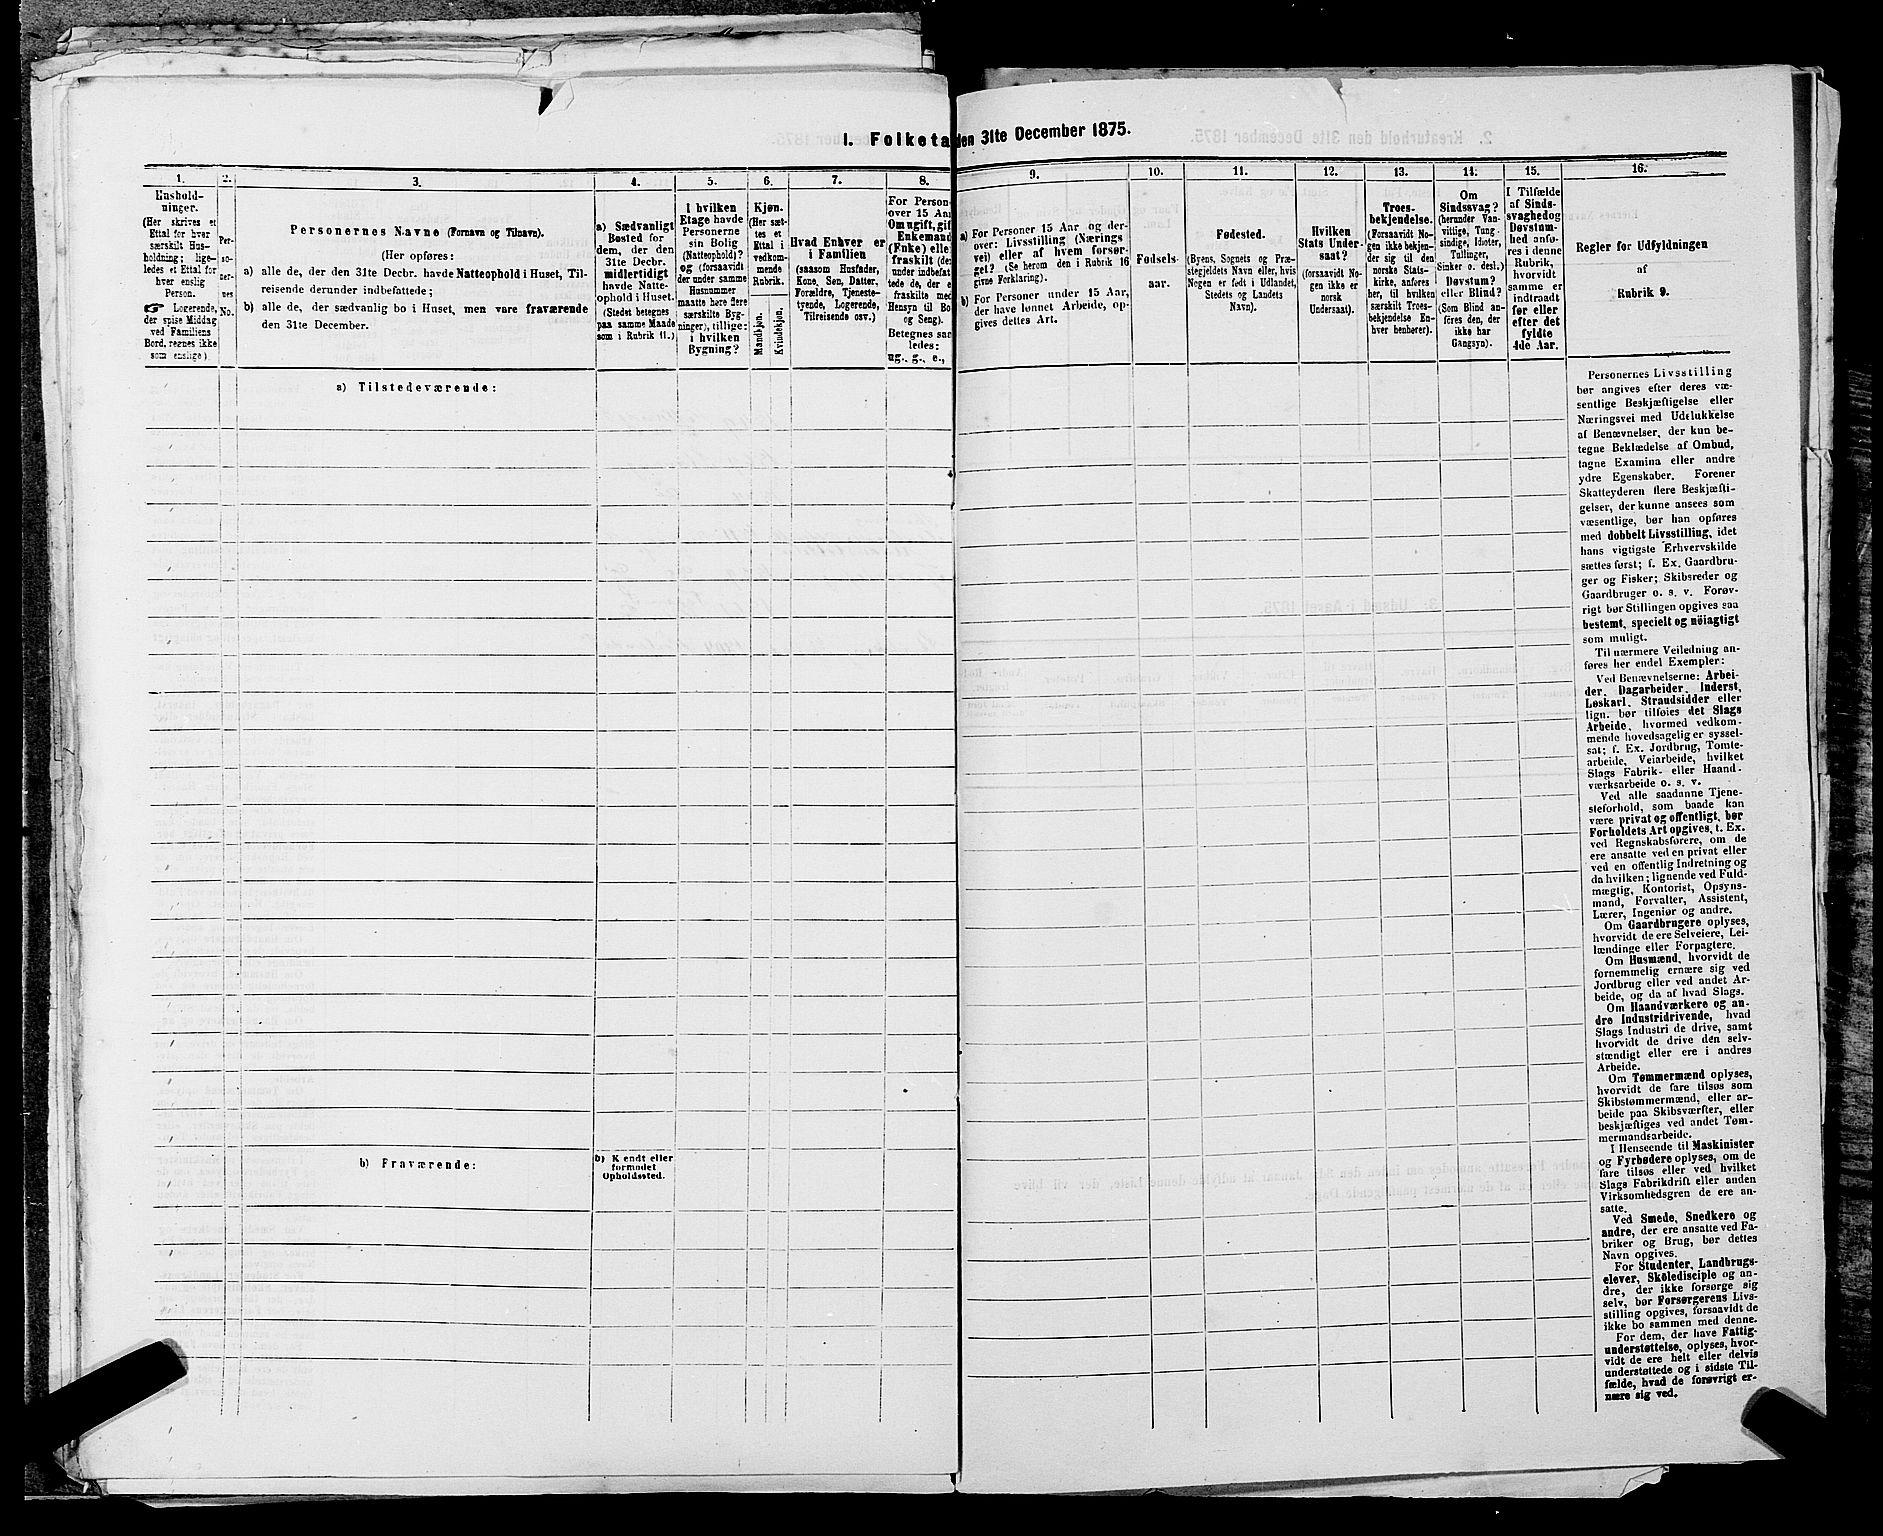 1. Folketa den 31te December 1875.
1.
Hushold-
ninger.
(Her skrives et
Ettal for hver
særskilt Hus-
holdning; lige-
ledes et Ettal for
hver enslig
Person.
☞ Logerende,
der spise Middag
ved Familiens
Bord, regnes ikke
som enslige)
2.
Per-
so-
ner-
nes
No.
3.
Personernes Navne (Fornavn og Tilnavn).
(Her opføres:
a) alle de, der den 31te Decbr. havde Natteophold i Huset, Til-
reisende derunder indbefattede;
b) alle de, der sædvanlig bo i Huset, men vare fraværende
den 31te December.
4.
a) Sædvanligt
Bosted for
dem, der den
31te Decbr.
midlertidigt
havde Natte-
ophold i Huset.
(Stedet betegnes
paa samme Maade
som i Rubrik 11.)
5.
I hvilken
Etage havde
Personerne
sin Bolig
(Natteophold)?
og (forsaavidt
der under samme
Husnummer
maatte høre flere
særskilte Byg-
ninger), tillige:
i hvilken
Bygning?
6.
Kjøn.
(Her sæt-
tes et
Ettal i
vedkom-
mende
Rubrik.
Mandkjøn.
Kvindekjøn.
7.
Hvad Enhver er
i Familien
(saasom Husfader,
Kone, Søn, Datter,
Forældre, Tjeneste-
tyende, Logerende,
Tilreisende osv.)
8.
For Person
over 15 Aar
Om ugift, gift
Enkemand
(Enke) elle
fraskilt (der
under indbefat
tede de, der e
fraskilte med
Hensyn til Bo
og Seng).
Betegnes saa
ledes:
ug., g., e.,
9.
a) For Personer 15 Aar og der-
over: Livsstilling (Nærings
vei) eller af hvem forsør-
get? (Se herom den i Rubrik 16
givne Forklaring).
b) For Personer under 15 Aar,
der have lønnet Arbeide, op-
gives dettes Art.
10.
Fødsels-
aar.
11.
Fødested.
(Byens, Sognets og Præ-
stegjeldets Navn eller, hvis
Nogen er født i Udlandet,
Stedets og Landets
Navn).
12.
Hvilken
Stats Under-
saat?
(forsaavidt No-
gen ikke er
norsk
Undersaat).
13.
Troes-
bekjendelse.
(Forsaavidt No-
gen ikke bekjen-
der sig til den
norske Stats-
kirke, anføres
her, til hvilken
særskilt Troes-
bekjendelse En-
hver henhører).
14.
Om
Sindssvag?
(herunder Van-
vittige, Tung
sindige, Idioter,
Tullinger,
Sinker o. desl.)
Døvstum?
eller Blind?
(Som Blind an-
føres den, der
ikke har
Gangsyn).
15.
I Tilfælde
af Sinds-
svaghed og
Døvstum-
hed anfø-
res i denne
Rubrik,
hvorvidt
samme er
indtraadt
før eller
efter det
fyldte
4de Aar.
16.
Regler for Udfyldningen
af
Rubrik 9.
a) Tilstedeværende:
b) Fraværende:
b) Kjendt eller
formodet
Opholdssted.
Personernes Livsstilling
bør angives efter deres væ-
sentlige Beskjæftigelse eller
Næringsvei med Udelukkelse
af Benævnelser, der kun be-
tegne Beklædelse af Ombud,
tagne Examina eller andre
ydre Egenskaber. Forener
Skatteyderen flere Beskjæfti-
gelser, der kunne ansees som
væsentlige, bør han opføres
med dobbelt Livsstilling, idet
hans vigtigste Erhvervskilde
sættes først; f. Ex. Gaardbru-
ger og Fisker; Skibsreder og
Gaardbruger o. s. v. Forøv-
rigt bør Stillingen opgives saa
bestemt, specielt og nøiagtigt
som muligt.
Til nærmere Veiledning an-
føres her endel Exempler:
Ved Benævnelserne: Arbei-
der, Dagarbeider, Inderst,
Løskarl, Strandsidder eller
lign. bør tilføies det Slags
Arbeide, hvormed vedkom-
mende hovedsagelig er syssel-
sat; f. Ex. Jordbrug, Tomte-
arbeide, Veiarbeide, hvilket
Slags Fabrik- eller Haand-
værksarbeide o. s. v.
Ved alle saadanne Tjene-
steforhold, som baade kan
være privat og offentligt, bør
Forholdets Art opgives, t. Ex.
ved Regnskabsførere, om de
ere ansatte ved en privat eller
ved en offentlig Indretning og
da hvilken; lignende ved Fuld-
mægtig, Kontorist, Opsyns-
mand, Forvalter, Assistent,
Lærer, Ingeniør og andre.
Om Gaardbrugere oplyses,
hvorvidt de ere Selveiere, Lei-
lændinge eller Forpagtere.
Om Husmænd, hvorvidt de
fornemmelig ernære sig ved
Jordbrug eller ved andet Ar-
beide, og da af hvad Slags.
Om Haandværkere og an-
dre Industridrivende, hvad
Slags Industri de drive, samt
hvorvidt de drive den selv-
stændigt eller ere i andres
Arbeide.
Om Tømmermænd oplyses,
hvorvidt de fare tilsøs som
Skibstømmermænd, eller ar-
beide paa Skibsværfter, eller
beskjæftiges ved andet Tøm-
mermandsarbeide.
I Henseende til Maskinister
og Fyrbødere oplyses, om de
fare tilsøs eller ved hvilket
Slags Fabrikdrift eller anden
Virksomhedsgren de ere an-
satte.
Ved Smede, Snedkere og
andre, der ere ansatte ved Fa-
briker og Brug, bør dettes
Navn opgives.
For Studenter, Landbrugs-
elever, Skoledisciple og an-
dre, der ikke forsørge sig
selv, bør Forsørgerens Livs-
stilling opgives, forsaavidt de
ikke bo sammen med denne.
For dem, der have Fattig-
understøttelse, oplyses, hvor-
vidt de ere helt eller delvis
understøttede og i sidste Til-
fælde, hvad de forøvrigt er-
nære sig ved.